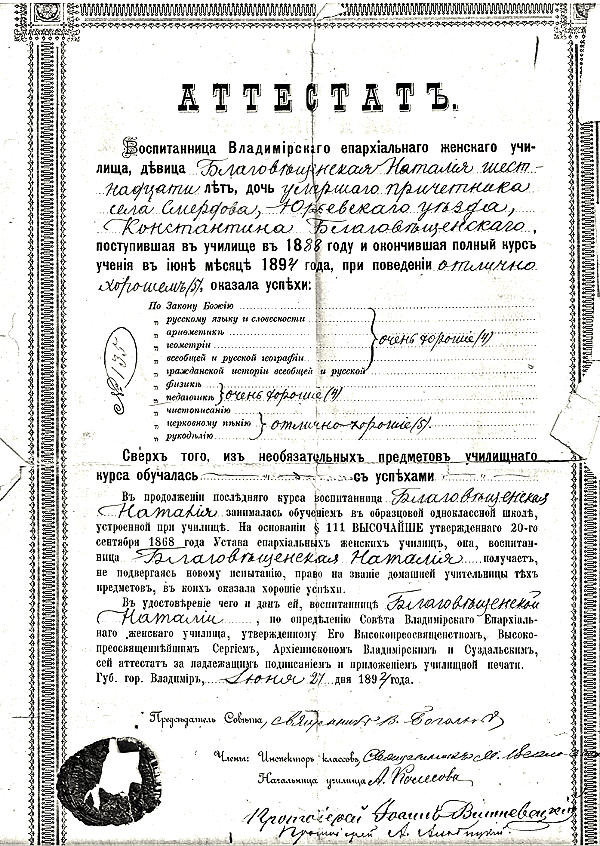 АТТЕСТАТЪ.
Воспитанница Владимірскаго епархіальнаго женскаго учи-
лища, дѣвица Благовѣщенская Наталія шест-
надцати лѣтъ, дочь умершаго причетника
села Смердова, Юрьевскаго уѣзда,
Константина Благовѣщенскаго,
поступившая въ училище въ 1888 году и окончившая полный курсъ
ученія въ іюнѣ мѣсяцѣ 1894 года, при поведеніи отлично
хорошемъ (5) оказала успѣхи:
По Закону Божію
„ русскому языку и словесности
„ ариѳметикѣ
„ геометріи очень хорошіе (4)
„ всеобщей и русской географіи
„ гражданской исторіи всеобщей и русской
„ физикѣ
„ педагогикѣ очень хорошіе (4)
„ чистописанію
„ церковному пѣнію отлично хорошіе (5).
„ рукодѣлію
№ 135
Сверхъ того, изъ необязательныхъ предметовъ училищнаго
курса обучалась съ успѣхами
Въ продолженіи послѣдняго курса воспитанница Благовѣщенская
Наталія занималась обученіемъ въ образцовой одноклассной школѣ,
устроенной при училищѣ. На основаніи § 111 ВЫСОЧАЙШЕ утвержденнаго 20-го
сентября 1868 года Устава епархіальныхъ женскихъ училищъ, она, воспитан-
ница Благовѣщенская Наталія получаетъ,
не подвергаясь новому испытанію, право на званіе домашней учительницы тѣхъ
предметовъ, въ коихъ оказала хорошіе успѣхи.
Въ удостовѣреніе чего и данъ ей, воспитанницѣ Благовѣщенской
Наталіи, по опредѣленію Совѣта Владимірскаго Епархіаль-
наго женскаго училища, утвержденному Его Высокопреосвященствомъ, Высоко-
преосвященнѣйшимъ Сергіемъ, Архіепископомъ Владимірскимъ и Суздальскимъ,
сей аттестатъ за надлежащимъ подписаніемъ и приложеніемъ училищной печати.
Губ. гор. Владиміръ, Іюня 21 дня 1894 года.
Предсѣдатель Совѣта, священникъ В.
Члены: Инспекторъ классовъ, Священникъ М.
Начальница училища А. Колесова
Протоіерей Іоаннъ
Протоіерей А.